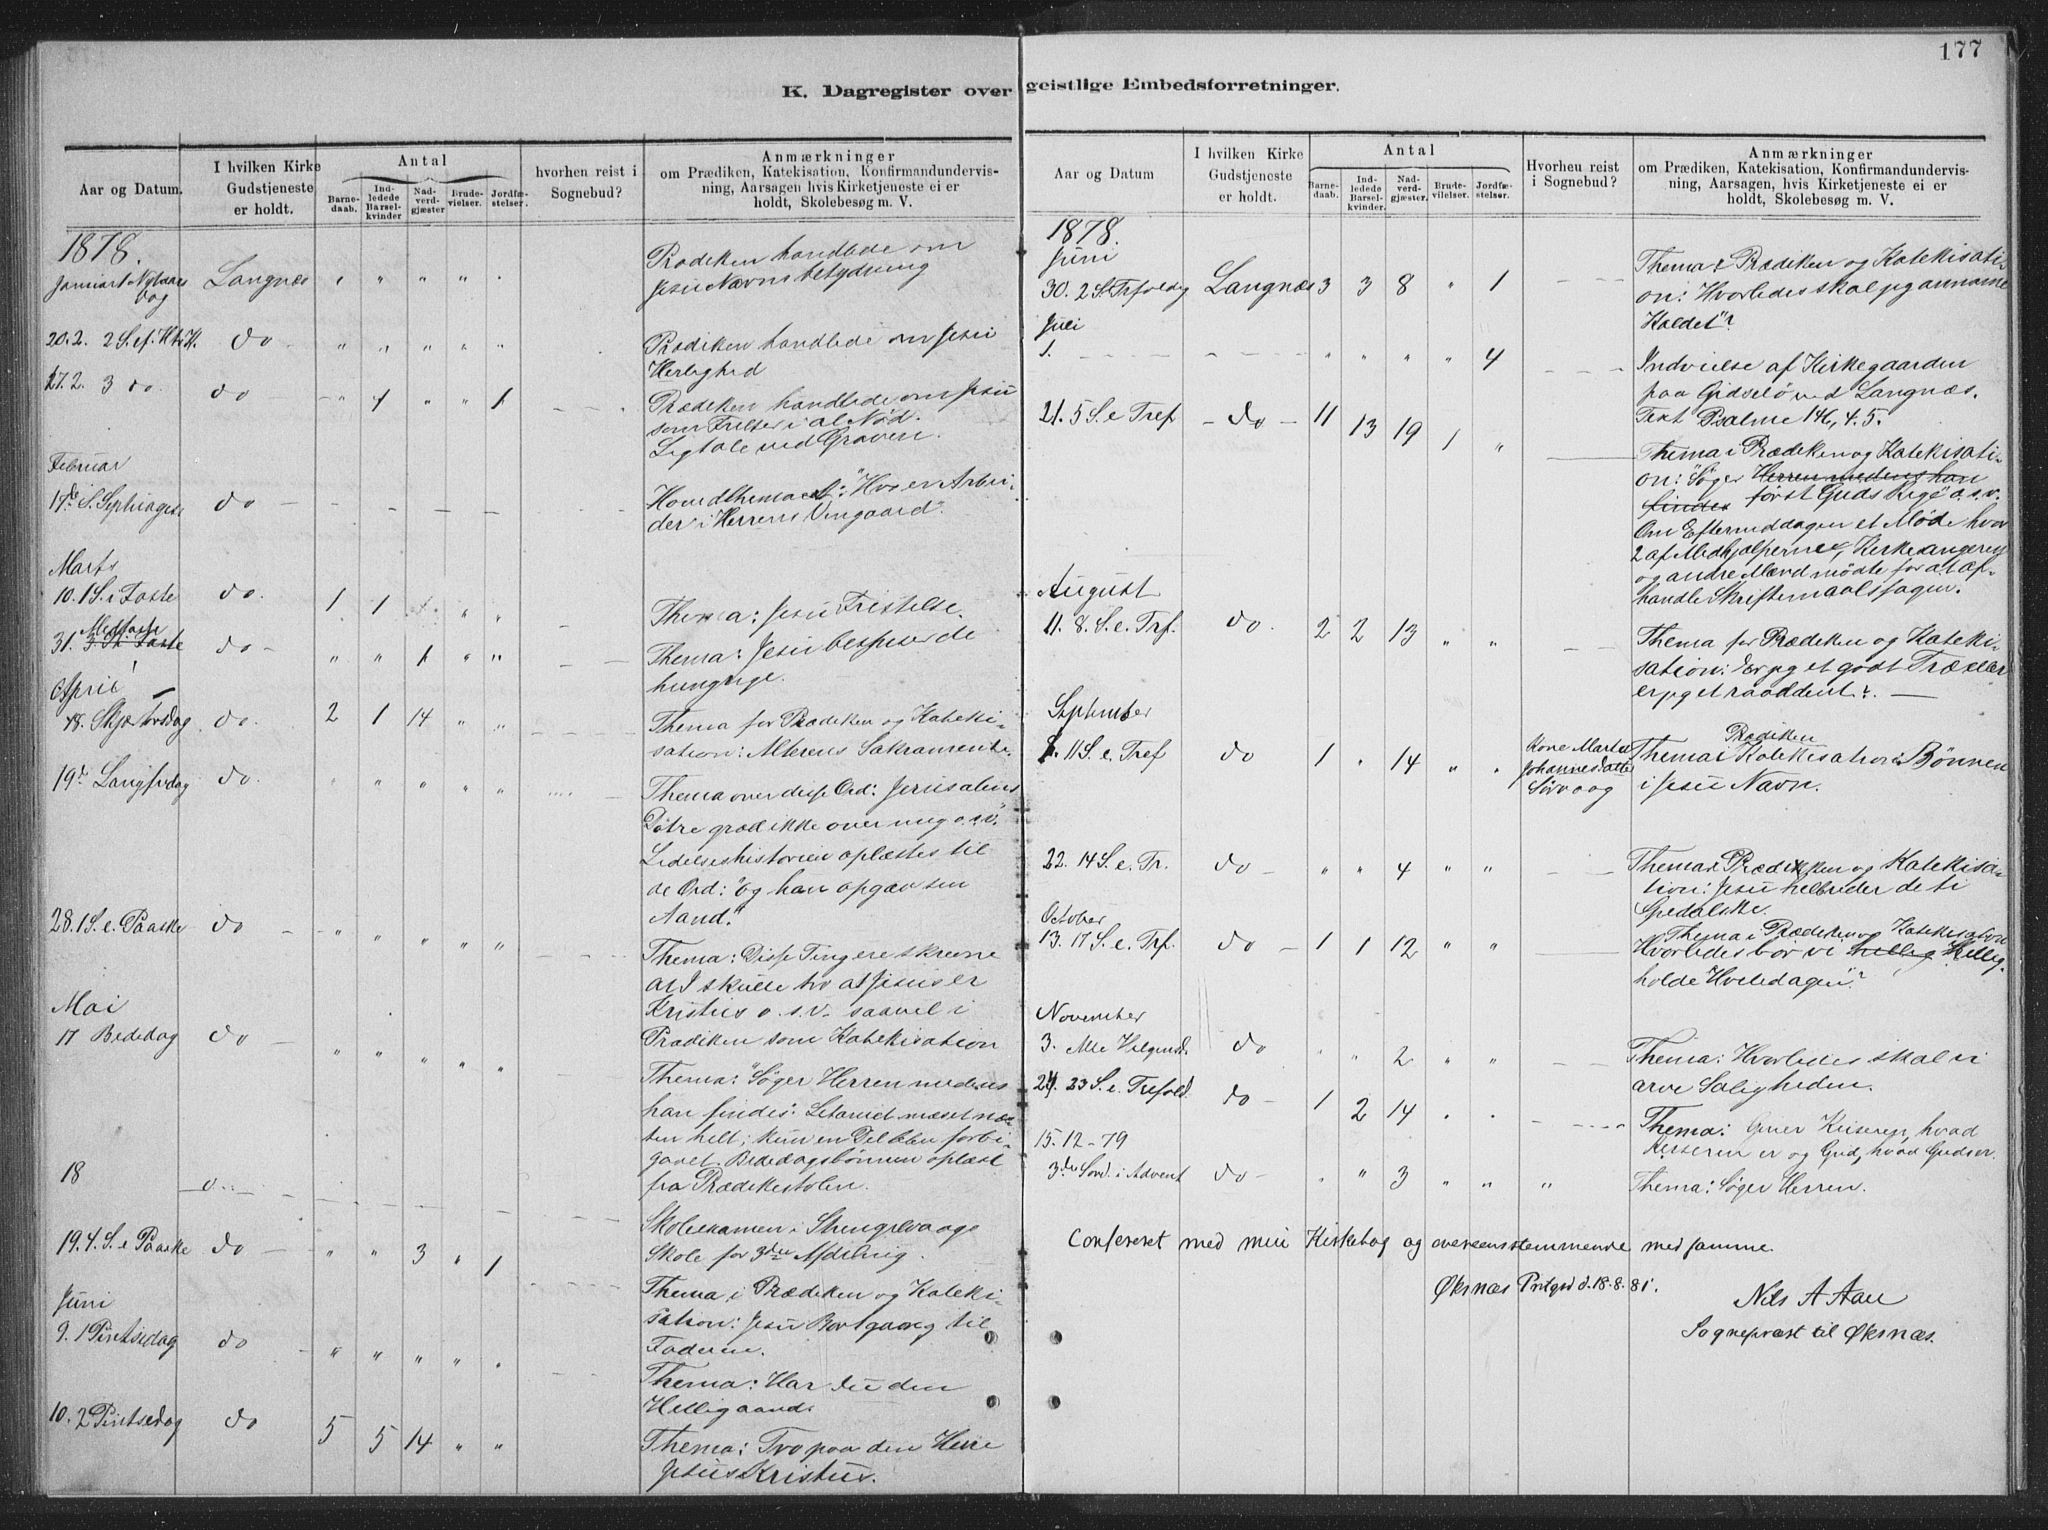 177
K. Dagregister over geistlige Embedsforretninger.
Aar og Datum.
I hvilken Kirke
Gudstjeneste
er holdt.
Antal
Barne-
daab.
Ind-
ledede
Barsel-
kvinder
Nad-
verd-
gjæster
Brude-
vielser.
Jordfæ-
stelser.
hvorhen reist i
Sognebud?
Anmærkninger
om Prædiken, Katekisation, Konfirmandundervis-
ning, Aarsagen hvis Kirketjeneste ei er
holdt, Skolebesøg m. V.
1878.
Januar 1 Nytaars Langnæs " " " " "
dag
Prædiken handlede om
Jesu Navns betydning
20. 2. 2 S. ef. H.t.K. do " " " " "
Prædiken handlede om Jesu
Herlighed
27. 2. 3 do. do - " 1 " " 1 - -
Prædiken handlede om Jesu
som Frelser i al Nød.
Ligtale ved Graven.
Februar
17de S. Septuages. do - - - - - -
Hovedthemaet: "Hver Arbei-
der i Herrens Vingaard".
Marts
10. 1 S. i Faste do. 1 1 " "
Thema: Jesu Fristelse
Midfaste
31. 3 S. Faste do - " " 1 " " - -
Thema: Jesu bespiser de
hungrige.
April
18. Skjærtorsdag do. 2 1 14 " "
Thema for Prædiken og Kateki-
sation: Alterens Sakramente.
19de Langfredag do. " " " " "
Thema over disse Ord: Jerusalems
Døtre græd ikke over mig o.s.v.
Lidelseshistorien oplæstes til
de Ord: "og han opgav sin
Aand."
28. 1 S. e. Paaske do - " " " " "
Thema: Disse Ting ere skrevne
at I skulle tro at Jesus er
Kristus o. s. v. saavel i
Prædiken som Katekisation
Mai
17 Bededag do - " " " " "
Thema: "Søger Herren medens
han findes: Litaniet messet næ-
ten helt; kun en Del blev forbi-
gaaet. Bededagsbønnen oplæst
fra Prædikestolen.
18
Skoleexamen i Strengelvaags
Skole for 3die Afdeling.
19. 4. S. e Paaske do - " " 3 " 1
Thema i Prædiken og Kateki-
sation: Jesu Bortgang til
Faderen.
Juni
9. 1 Pintsedag do " " " " "
Thema: Har du den
Helligaand.
10. 2 Pintsedag do 5 5 14 " "
Thema: Tro paa den Herre
Jesus Kristus.
Aar og Datum
I hvilken Kirke
Gudstjeneste
er holdt.
Antal
Barne-
daab.
Ind-
ledede
Barsel-
kvinder.
Nad-
verd-
gjæster.
Brude-
vilelser.
Jordfæ-
stelser.
Hvorheu reist
i Sognebud?
Anmærkninger
om Prædiken, Katekisation, Konfirmandundervis-
ning, Aarsagen, hvis Kirketjeneste ei er
holdt, Skolebesøg m. V.
1878.
Juni
30. 2 S. Trefoldig Langnæs 3 3 8 " 1 - -
Thema i Prædiken og Katekisati-
on: Hvorledes skal jeg annamme
Kaldet"?
Juli
1. - - - - - " " " " 4 - - -
Indvielse af Kirkegaarden
paa Gidselø ved Langnæs.
Text Psalme 146, 4. 5.
21. 5 S. e Tref - do - 11 13 19 1 "
Thema i Prædiken og Katekisati-
on: "Søger Herren medens han
findes først Guds Rige o. s. v.
Om Eftermiddagen et Møde hvor
2 af Medhjælperne, Kirkesangeren
og andre Mænd mødte for at af-
handle Skriftemaalssagen.
August
11. 8. S. e. Trf. do. 2 2 13 " "
Thema for Prædiken og Kateki-
sation: Er jeg et godt Træ eller
er jeg et raaddent?. —
September
1. 11 S. e. Tref do 1 " 14 " "
Kone Martha
Johannesdatter
Sørvaag
Prædiken
Thema i Katekisation: Bønnen
i Jesu Navn.
22. 14 S. e. Tr. do - " " 4 " " - -
Thema i Prædiken og Katekisa-
tion: Jesu helbreder de ti
Spedalske.
October
13. 17 S. e. Trf. do - 1 1 12 " "
Thema i Prædiken og Katekisation
Hvorledes bør vi hellig Hellig-
holde Hviledagen"?
November
3. Alle Helgensd. do " " 2 " " - -
Thema: Hvorledes skal vi
arve Saligheden.
24. 23 S. e. Trefold. do - 1 2 14 " "
Thema: Giver Keiseren, hvad
Keiseren er og Gud, hvad Guds er.
15. 12 - 79
3die Sønd. i Advent do - " " 3 " " "
Thema: Søger Herren.
Confereret med min Kirkebog og overeensstemmende med samme.
Øksnæs Prstgrd d. 18. 8. 81.
Nils A Aau
Sognepræst til Øksnæs.